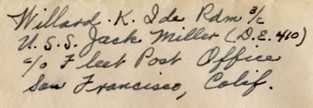 Willard. K. Ide Rdm 3/c
U.S.S. Jack Miller (D.E. 410)
c/o Fleet Post Office
San Francisco, Calif.